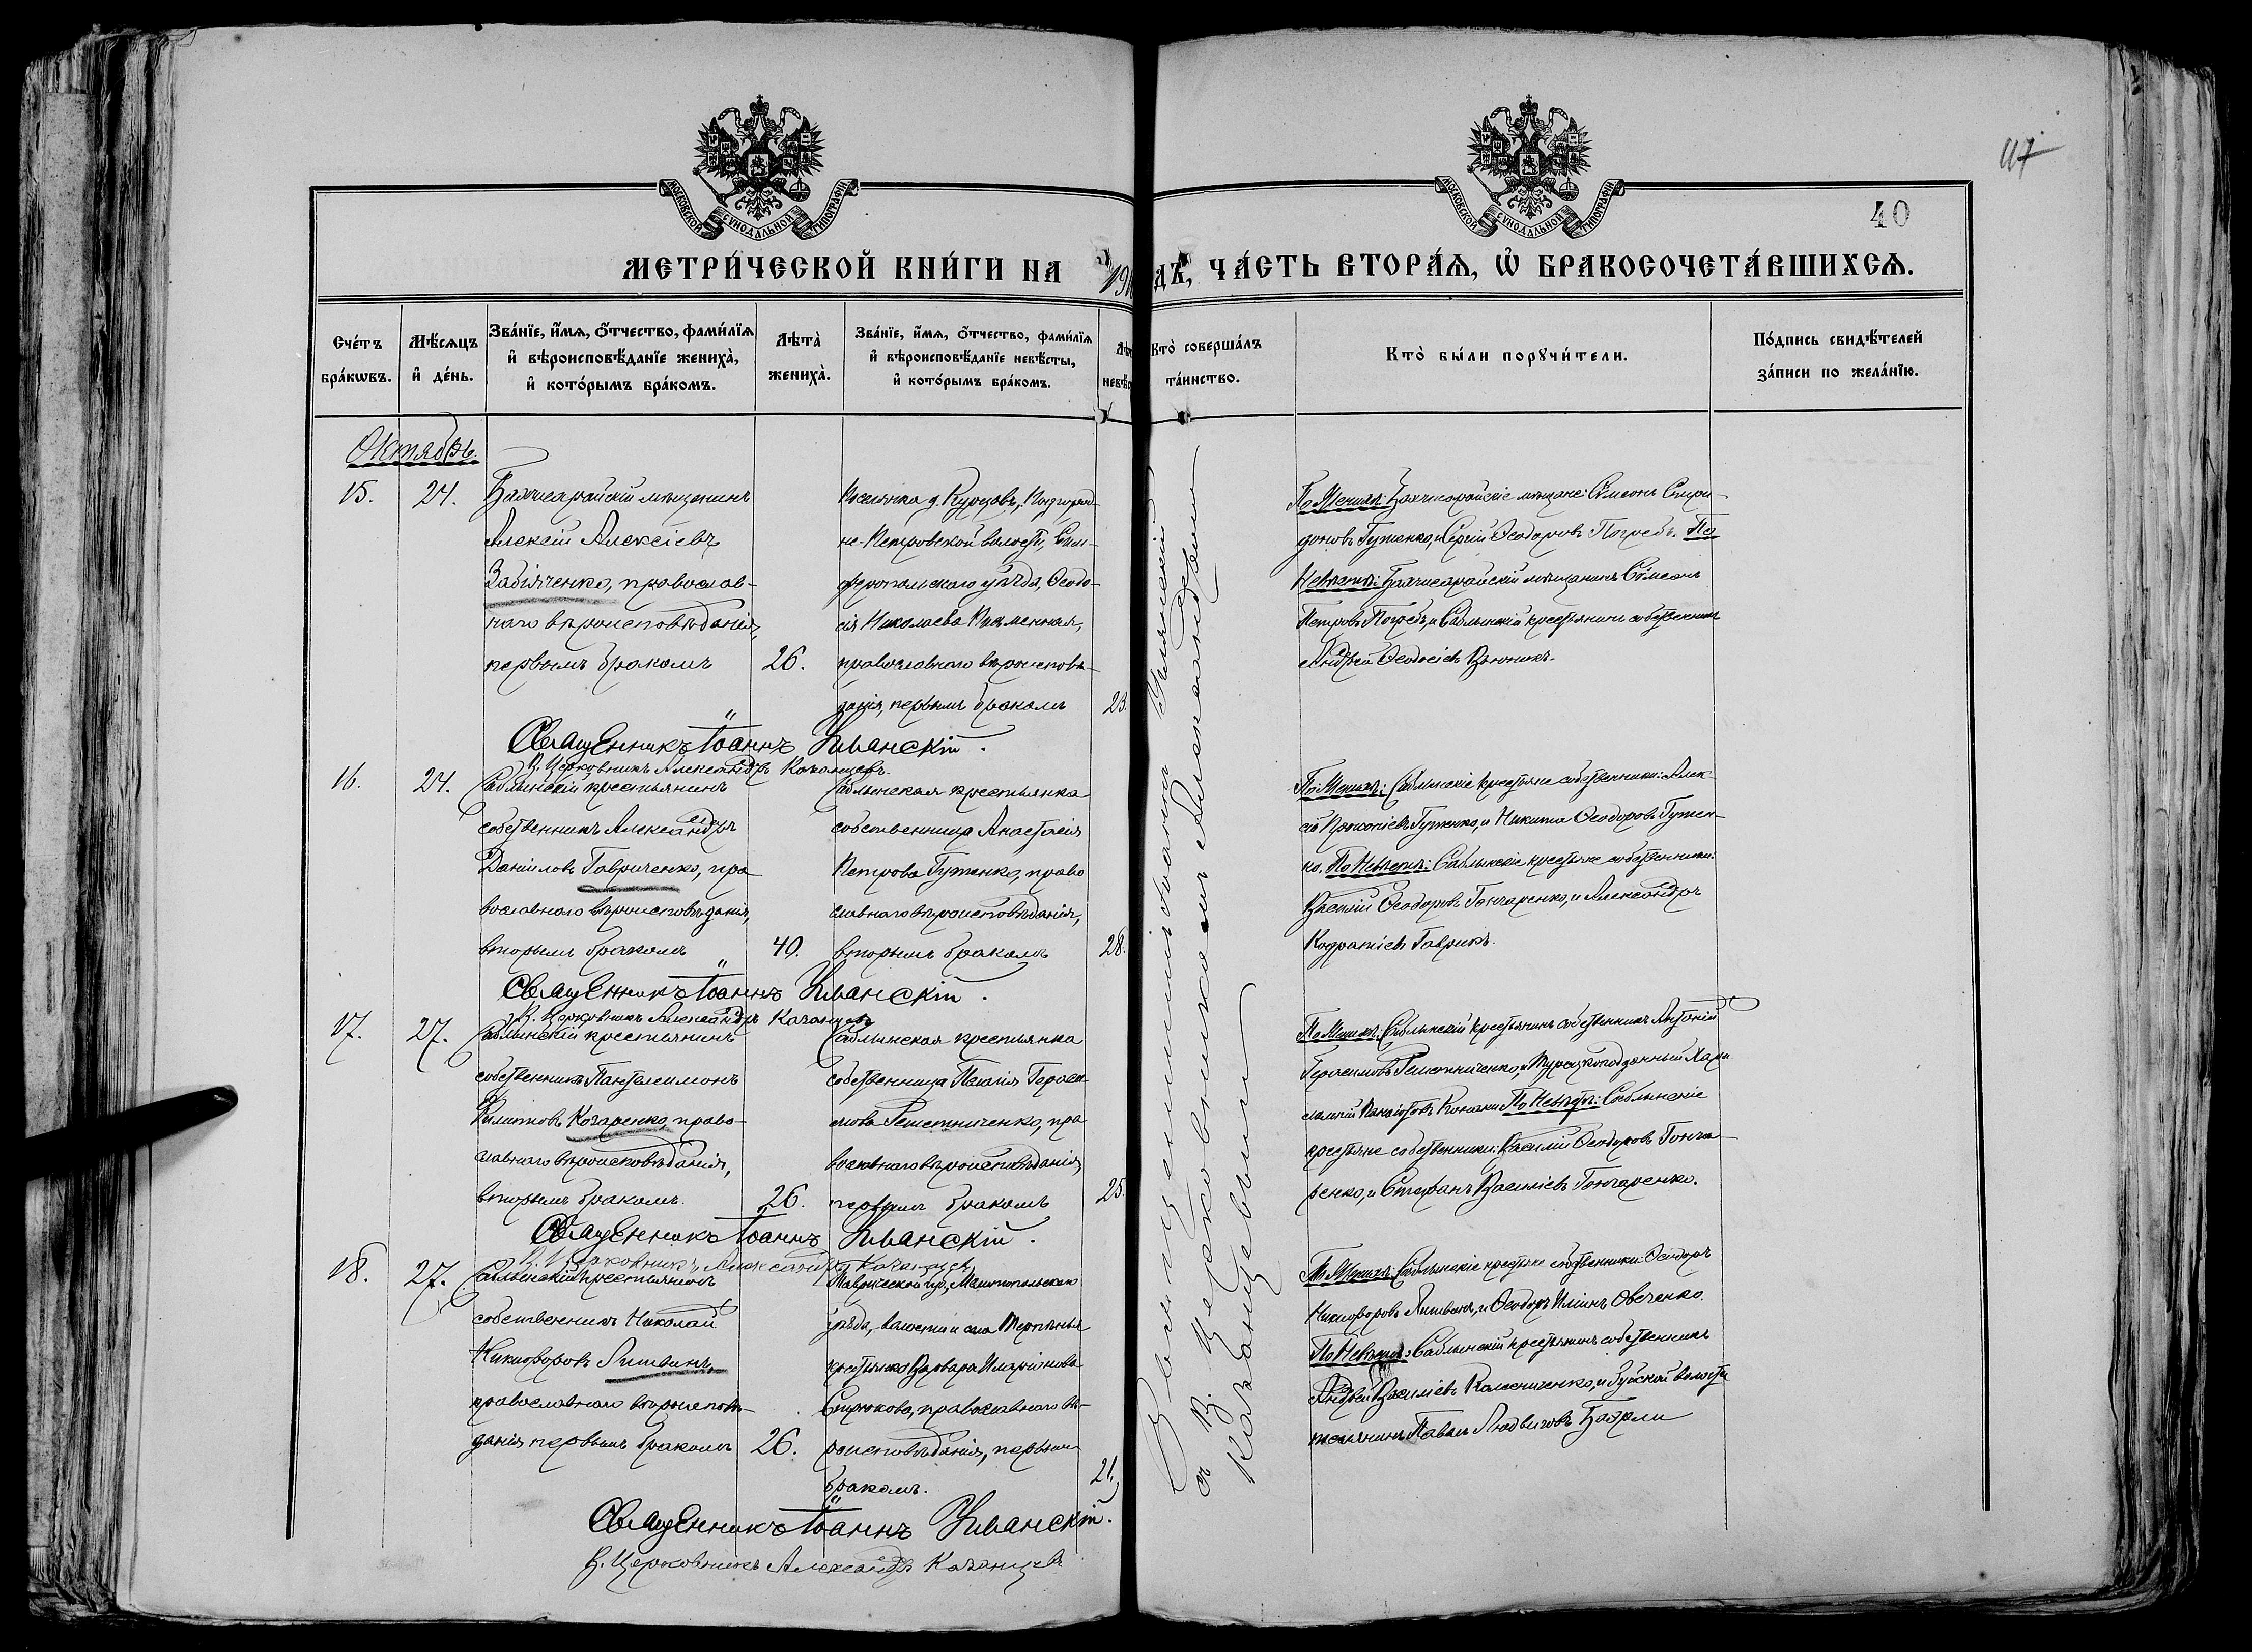 117
40
МОСКОВСКОЙ СѴНОДАЛЬНОЙ ТИПОГРАФІИ
МОСКОВСКОЙ СѴНОДАЛЬНОЙ ТИПОГРАФІИ
МЕТРИ́ЧЕСКОЙ КНИ́ГИ НА 191 ДЪ, ЧА́СТЬ ВТОРА́Я, Ѡ҆ БРАКОСОЧЕТА́ВШИХСЯ.
Сче́тъ бра́кѡвъ.
Мѣ́сяцъ и҆ де́нь.
Зва́нїе, и҆́мя, ѻ҆́тчество, фами́лїя и҆ вѣроисповѣ́данїе жениха̀, и҆ кото́рымъ бра́комъ.
Лѣта̀ жениха̀.
Зва́нїе, и҆́мя, ѻ҆́тчество, фами́лїя и҆ вѣроисповѣ́данїе невѣ́сты, и҆ кото́рымъ бра́комъ.
Кто̀ соверша́лъ та́инство.
Кто̀ бы́ли порꙋчи́тели.
По́дпись свидѣ́телей за́писи по жела́нїю.
Октябрь.
15.
24.
Бахчисарайскій мѣщанинъ
Алексій Алексіевъ
Забіяченко, православ-
наго вѣроисповѣданія,
первымъ бракомъ
26.
Поселянка д. Курцовъ, Подгород-
не-Петровской волости, Сим-
феропольскаго уѣзда, Ѳеодо-
сія Николаева
православнаго вѣроисповѣ-
данія, первымъ бракомъ
23.
По Женихѣ: Бахчисарайскіе мѣщане: Сѵмеонъ Спири-
доновъ Гутенко, и Сергій Ѳеодоровъ Погребъ. По
Невѣстѣ: Бахчисарайскій мѣщанинъ Сѵмеонъ
Петровъ Погребъ, и Саблынскій крестьянинъ собственникъ
Андрей Ѳеодосіевъ Вьюникъ.
Священникъ Іоаннъ Уманскій.
В. Церковникъ Александръ Казанцевъ.
16.
24.
Саблынскій крестьянинъ
собственникъ Александръ
Даниловъ Гавриченко, пра-
вославнаго вѣроисповѣданія,
вторымъ бракомъ
40.
Саблынская крестьянка
собственница Анастасія
Петрова Гутенко, право
славнаго вѣроисповѣданія,
вторымъ бракомъ
28.
По Женихѣ: Саблынскіе крестьяне собственники: Алек-
сій Прокопіевъ Гутенко, и Никита Ѳеодоровъ Гутен-
ко. По Невѣстѣ: Саблынскіе крестьяне собственники:
Василій Ѳеодоровъ Гончаренко, и Александръ
Кодратіевъ Гаврикъ.
Священникъ Іоаннъ Уманскій.
В. Церковникъ Александръ Казанцевъ
17.
27.
Саблынскій крестьянинъ
собственникъ Пантелеимонъ
Филипповъ Козаренко, право-
славнаго вѣроисповѣданія,
вторымъ бракомъ.
26.
Саблынская крестьянка
собственница Пелагія Гераси-
мова Решетниченко, пра
вославнаго вѣроисповѣданія,
первымъ бракомъ
25.
По Женихѣ: Саблынскій крестьянинъ собственникъ Антоній
Герасимовъ Решетниченко, и Турецкоподданный Хара
лампій Панаіотовъ По Невѣстѣ: Саблынскіе
крестьяне собственники: Василій Ѳеодоровъ Гонча-
ренко, и Стефанъ Василіевъ Гончаренко.
Священникъ Іоаннъ Уманскій.
В. Церковникъ Александръ Казанцевъ
18.
27.
Саблынскій крестьянинъ
собственникъ Николай
Никифоровъ Литвинъ,
православнаго вѣроисповѣ-
данія первымъ бракомъ
26.
Таврической гр, Мелитопольскаго
уѣзда, волости и села Терпѣнья
крестьянка Варвара Иларіонова
Бирюкова, православнаго вѣ-
роисповѣданія, первымъ
бракомъ.
21.
По Женихѣ: Саблынскіе крестьяне собственники: Ѳеодоръ
Никифоровъ Литвинъ, и Ѳеодоръ Иліинъ Овченко.
По Невѣстѣ: Саблынскій крестьянинъ собственникъ
Андрей Василіевъ Колесниченко, и волости
поселянинъ Павелъ Людвиговъ
Священникъ Іоаннъ Уманскій.
В. Церковникъ Александръ Казанцевъ
Священникъ Іоаннъ Уманскій
съ В. Церковникомъ Александромъ
Казанцевымъ